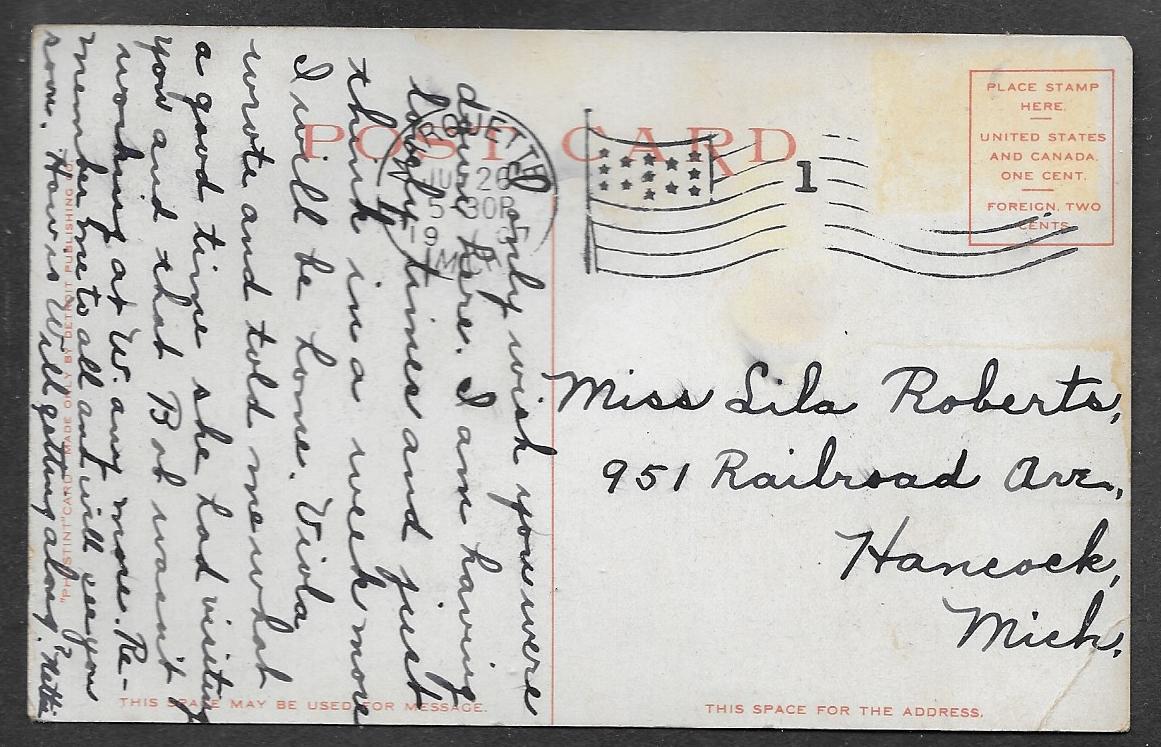 POST CARD
PLACE STAMP
HERE.
UNITED STATES
AND CANADA.
ONE CENT.
FOREIGN, TWO
CENTS
RQUETTE
26
5 30P
MICH
1
I only wish you were
down here. I am having
lovely times and just
think in a week more
I will be home. Viola
wrote and told me what
a good time she had visiting
you and that Bob wasn't
working at W. any more. Re-
member me to all and will see you
soon. How is Will getting along? Nettie
Miss Lila Roberts,
951 Railroad Ave.,
Hancock,
Mich.
"PHOSTINT" CARD MADE ONLY BY DETROIT PUBLISHING
THIS SPACE MAY BE USED FOR MESSAGE.
THIS SPACE FOR THE ADDRESS.